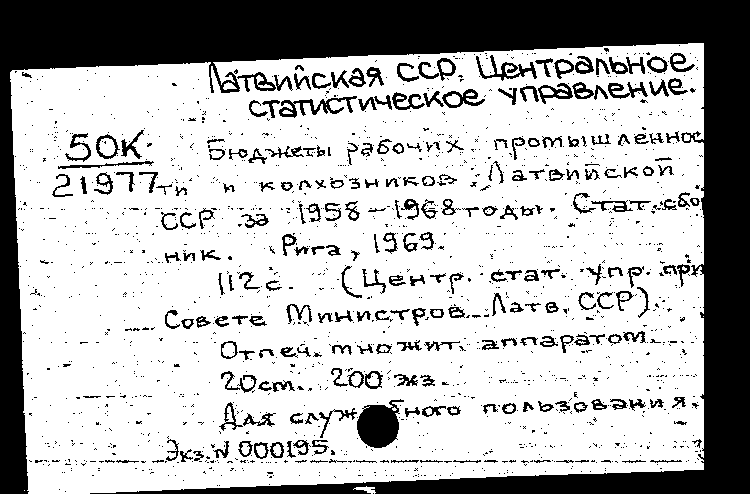 Латвийская ССР. Центральное
статистическое управление.
50К
21977
Бюджеты рабочих промышленнос
ти и колхозников Латвийской
ССР за 1958-1968 годы. Стат. сбор
ник. Рига, 1969.
112 с. (Центр. стат. упр. при
Совете Министров Латв. ССР).
Отпеч. множит. аппаратом.
20 см. 200 экз.
Для служебного пользования.
Экз. N 000195.